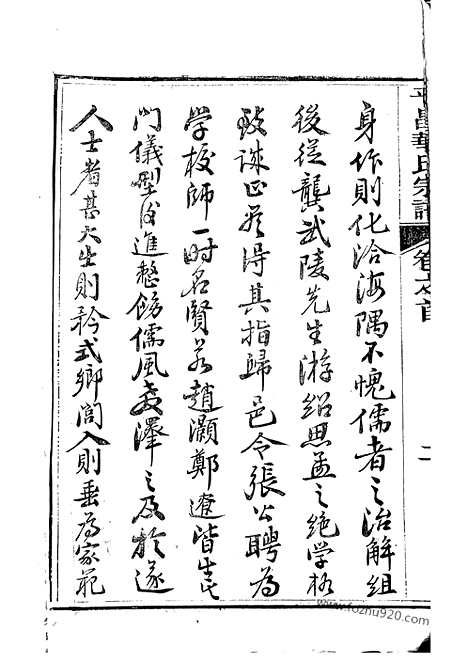 平昌華氏宗譜 卷之首 二
身作則化洽海隅不愧儒者之治解組
後從龔武陵先生游紹思孟之絶学極
致誅正於得其指歸邑令張公聘為
学校師一时名賢若趙灝鄭遼皆出
門儀型後進整飭儒風教澤之及於遂
人士者甚大出則矜式鄉閭入則垂為家範
www.fozhu920.com